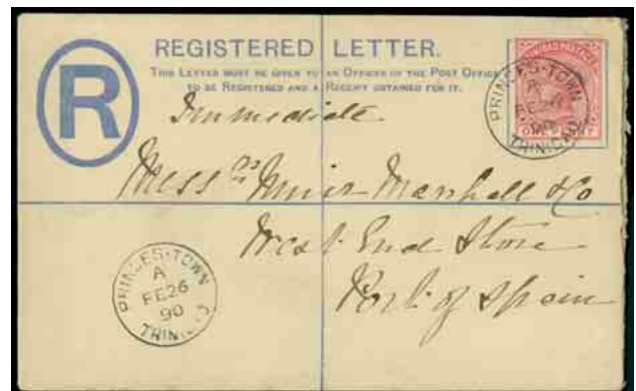 REGISTERED LETTER.
THIS LETTER MUST BE GIVEN TO AN OFFICER OF THE POST OFFICE
TO BE REGISTERED AND A RECEIPT OBTAINED FOR IT.
R
TRINIDAD POSTAGE
ONE PENNY
PRINCES-TOWN
A
FE26
90
TRINIDAD
Immediate
Messrs Muir Marshall & Co
West End Store
Port of Spain
PRINCES-TOWN
A
FE26
90
TRINIDAD